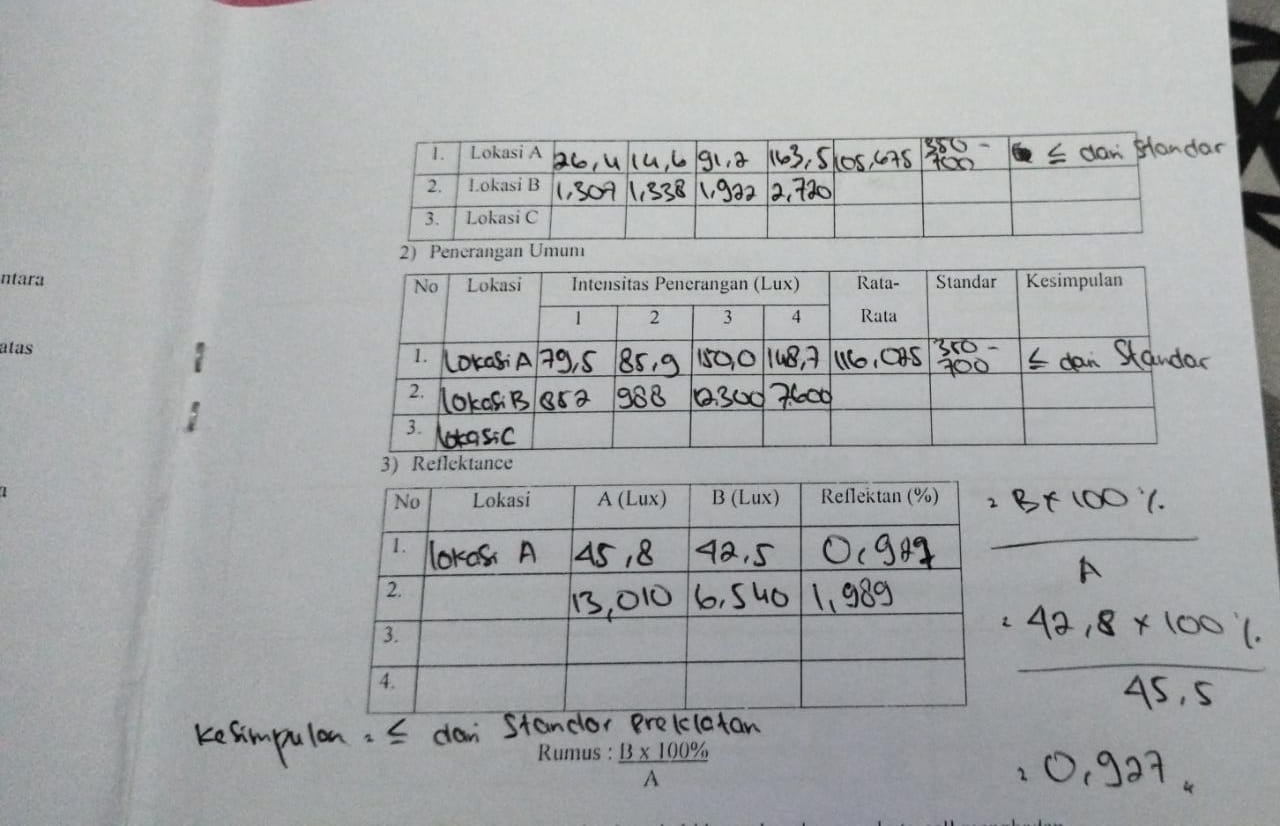 1. Lokasi A 26,4 14,6 91,2 163,5 105,675 350-700 ≤ dari Standar
2. Lokasi B 1,307 1,338 1,922 2,720
3. Lokasi C
2) Penerangan Umum
No Lokasi Intensitas Penerangan (Lux) Rata-Rata Standar Kesimpulan
1 2 3 4
1. Lokasi A 79,5 85,9 150,0 148,7 116,025 350-700 ≤ dari Standar
2. Lokasi B 852 988 12.300 7.600
3. Lokasi C
3) Reflektance
No Lokasi A (Lux) B (Lux) Reflektan (%)
1. lokasi A 45,8 42,5 0,927
2. 13,010 6,540 1,989
3.
4.
= B x 100 %
A
= 42,8 x 100 %
45,5
= 0,927
Kesimpulan = ≤ dari Standar
Rumus : B x 100%
A
ntara
atas